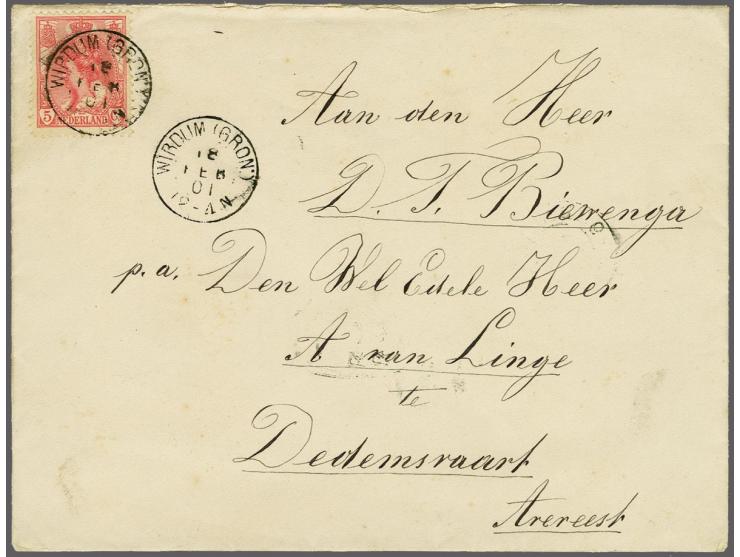 WIRDUM (GRON.)
18
FEB
01
5
NEDERLAND
WIRDUM (GRON.)
18
FEB
01
12-4N
Aan den Heer
D. T. Bierenga
p.a. Den Wel Edele Heer
A van Linge
te
Dedemsvaart
Avereest